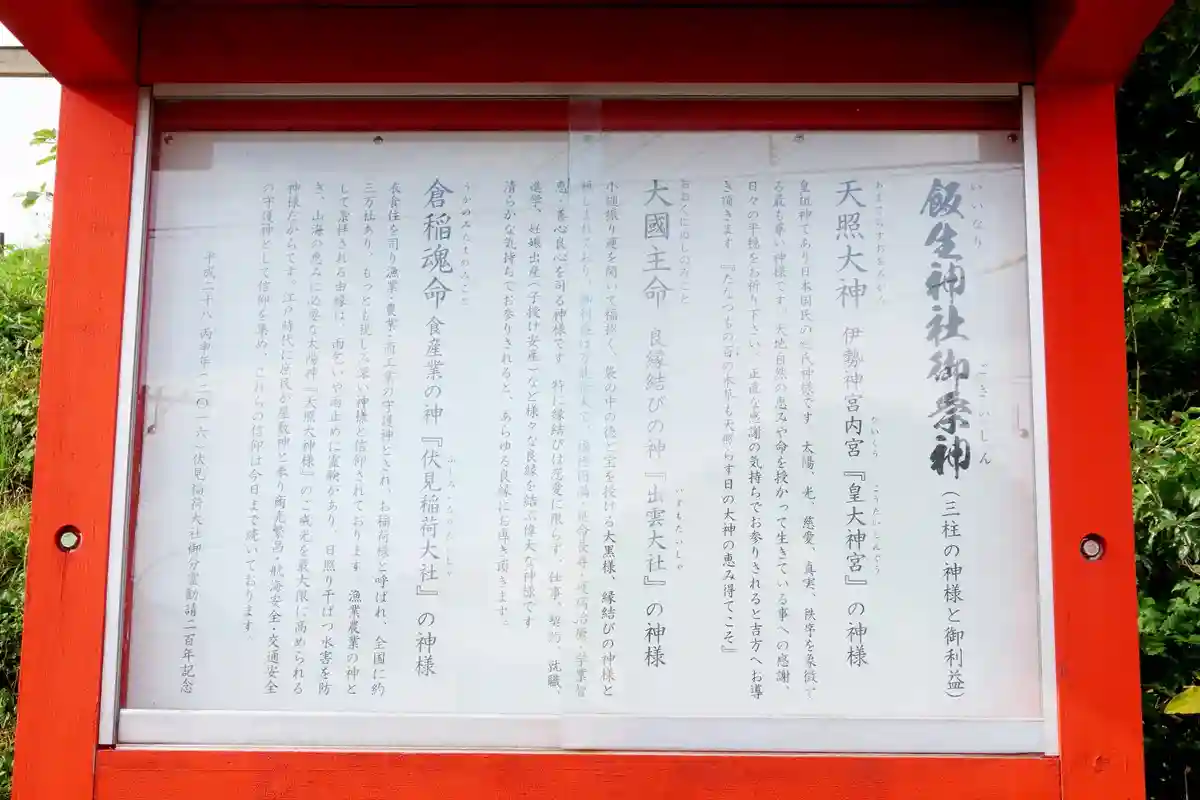 飯生神社御祭神（三柱の神様と御利益）
いいなり ごさいしん
天照大神 伊勢神宮内宮『皇大神宮』の神様
あまてらすおおみかみ ないくう こうたいじんぐう
皇祖神であり日本国民の総氏神様です 太陽、光、慈愛、真実、秩序を象徴す
る最も尊い神様です。大地自然の恵みや命を授かって生きている事への感謝、
日々の平穏をお祈り下さい。正直な感謝の気持ちでお参りされると吉方へお導
き頂きます 『たなつもの百の木草も天照らす日の大神の恵み得てこそ』
大國主命 良縁結びの神『出雲大社』の神様
おおくにぬしのみこと いずもたいしゃ
小槌振り運を開いて福招く、袋の中の徳ご宝を授ける大黒様、縁結びの神様と
恵・善心良心を司る神様です 特に縁結びは恋愛に限らず、仕事、契約、就職、
進学、妊娠出産（子授け安産）など様々な良縁を結ぶ偉大な神様です
清らかな気持ちでお参りされると、あらゆる良縁にお導き頂きます。
倉稲魂命 食産業の神『伏見稲荷大社』の神様
うかのみたまのみこと ふしみいなりたいしゃ
衣食住を司り漁業・農業・商工業の守護神とされ、お稲荷様と呼ばれ、全国に約
三万社あり、もっとも親しみ深い神様と信仰されております。漁業農業の神と
して崇拝される由縁は、雨乞いや雨止めに霊験があり、日照り干ばつ水害を防
ぎ、山海の恵みに必要な太陽神『天照大神様』のご威光を最大限に高められる
神様だからです。江戸時代に庶民が屋敷神と奉り商売繁昌・航海安全・交通安全
の守護神として信仰を集め、これらの信仰は今日まで続いております。
平成二十八丙申年（二〇一六）伏見稲荷大社御分霊勧請二百年記念